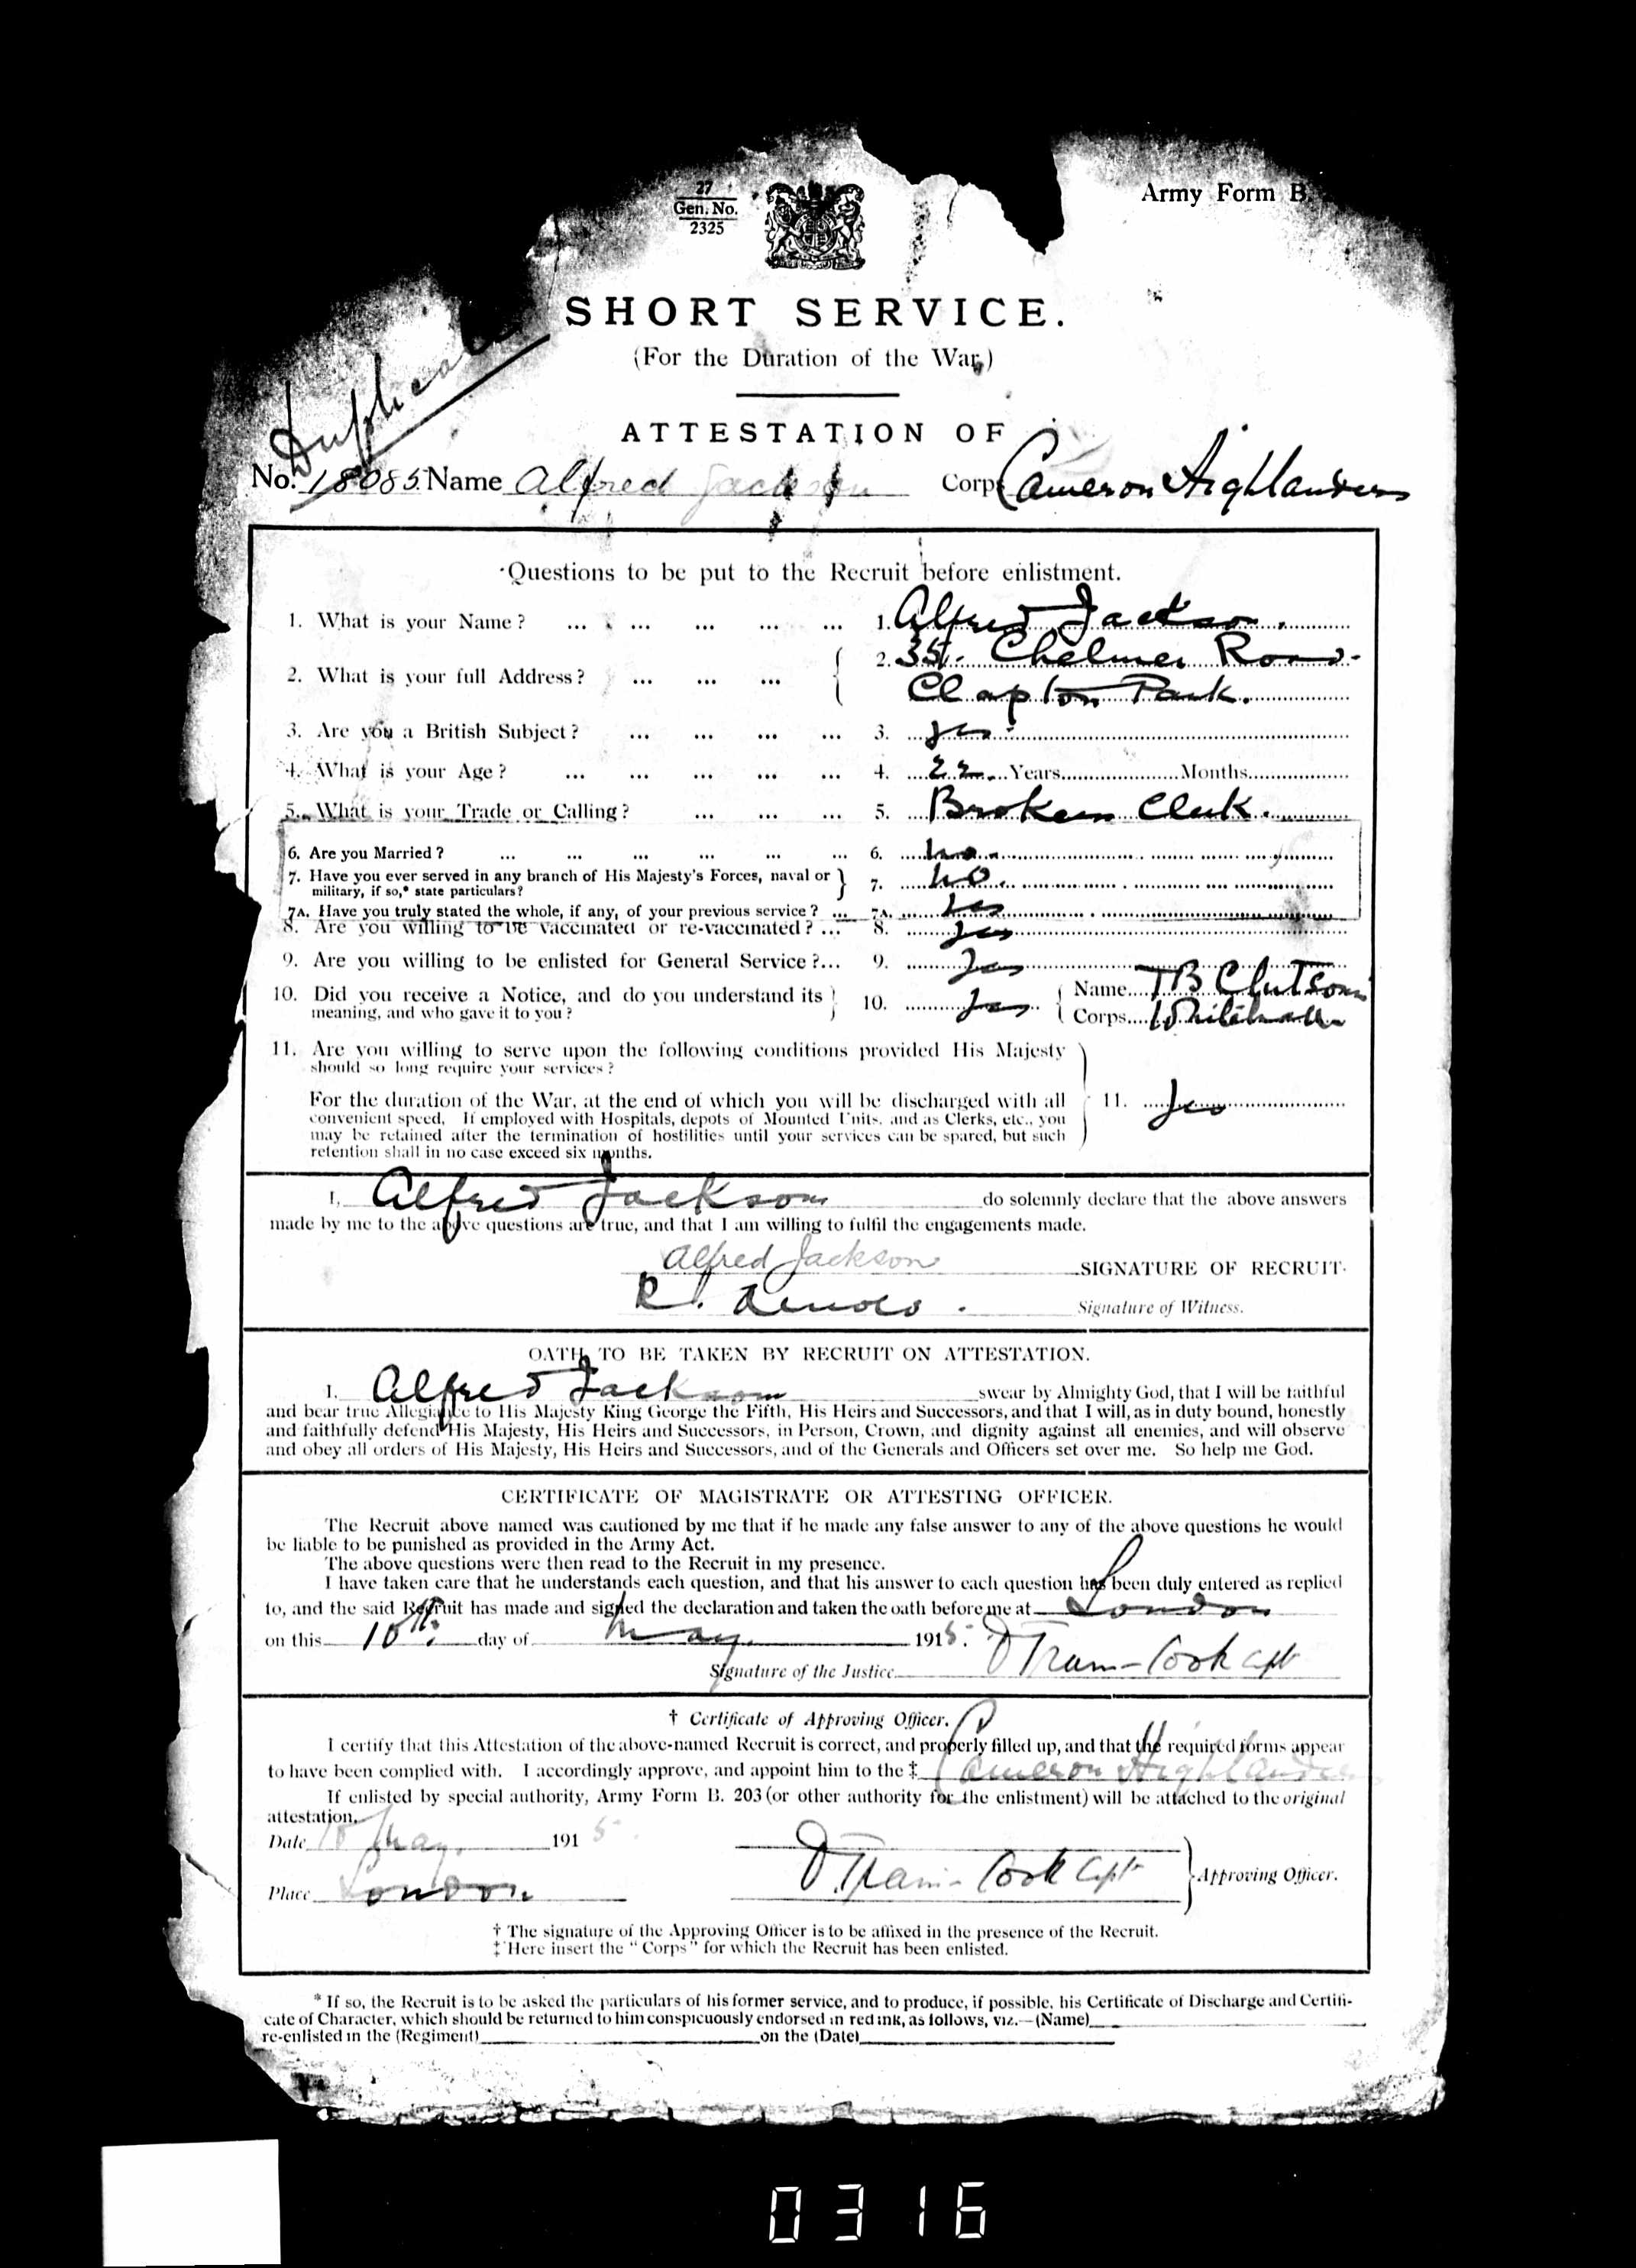 27
Gen. No.
2325
Army Form B.
SHORT SERVICE.
(For the Duration of the War.)
ATTESTATION OF
No. 18085 Name Alfred Jackson Corps Cameron Highlanders
Questions to be put to the Recruit before enlistment.
1. What is your Name? ... ... ... ... ... 1. Alfred Jackson.
2. What is your full Address? ... ... ... 2. 35, Chelmer Road.
Clapton Park.
3. Are you a British Subject? ... ... ... ... 3. Yes.
4. What is your Age? ... ... ... ... ... 4. 22 Years Months
5. What is your Trade or Calling? ... ... ... 5. Brokers Clerk.
6. Are you Married? ... ... ... ... ... ... 6. No.
7. Have you ever served in any branch of His Majesty's Forces, naval or
military, if so,* state particulars? 7. No.
7A. Have you truly stated the whole, if any, of your previous service? ... 7A. Yes
8. Are you willing to be vaccinated or re-vaccinated? ... 8. Yes
9. Are you willing to be enlisted for General Service?... 9. Yes
10. Did you receive a Notice, and do you understand its
meaning, and who gave it to you? 10. Yes Name
Corps Whitehall
11. Are you willing to serve upon the following conditions provided His Majesty
should so long require your services?
For the duration of the War, at the end of which you will be discharged with all
convenient speed. If employed with Hospitals, depots of Mounted Units, and as Clerks, etc., you
may be retained after the termination of hostilities until your services can be spared, but such
retention shall in no case exceed six months.
11. Yes
I, Alfred Jackson do solemnly declare that the above answers
made by me to the above questions are true, and that I am willing to fulfil the engagements made.
Alfred Jackson SIGNATURE OF RECRUIT.
R. Signature of Witness.
OATH TO BE TAKEN BY RECRUIT ON ATTESTATION.
I, Alfred Jackson swear by Almighty God, that I will be faithful
and bear true Allegiance to His Majesty King George the Fifth, His Heirs and Successors, and that I will, as in duty bound, honestly
and faithfully defend His Majesty, His Heirs and Successors, in Person, Crown, and dignity against all enemies, and will observe
and obey all orders of His Majesty, His Heirs and Successors, and of the Generals and Officers set over me. So help me God.
CERTIFICATE OF MAGISTRATE OR ATTESTING OFFICER.
The Recruit above named was cautioned by me that if he made any false answer to any of the above questions he would
be liable to be punished as provided in the Army Act.
The above questions were then read to the Recruit in my presence.
I have taken care that he understands each question, and that his answer to each question has been duly entered as replied
to, and the said Recruit has made and signed the declaration and taken the oath before me at London
on this 10th. day of May. 1915.
Signature of the Justice Cook Capt
† Certificate of Approving Officer.
I certify that this Attestation of the above-named Recruit is correct, and properly filled up, and that the required forms appear
to have been complied with. I accordingly approve, and appoint him to the ‡ Cameron Highlanders
If enlisted by special authority, Army Form B. 203 (or other authority for the enlistment) will be attached to the original
attestation.
Date 10 May. 1915.
Cook Capt Approving Officer.
Place London
† The signature of the Approving Officer is to be affixed in the presence of the Recruit.
‡ Here insert the "Corps" for which the Recruit has been enlisted.
* If so, the Recruit is to be asked the particulars of his former service, and to produce, if possible, his Certificate of Discharge and Certifi-
cate of Character, which should be returned to him conspicuously endorsed in red ink, as follows, viz.—(Name)
re-enlisted in the (Regiment) on the (Date)
0316